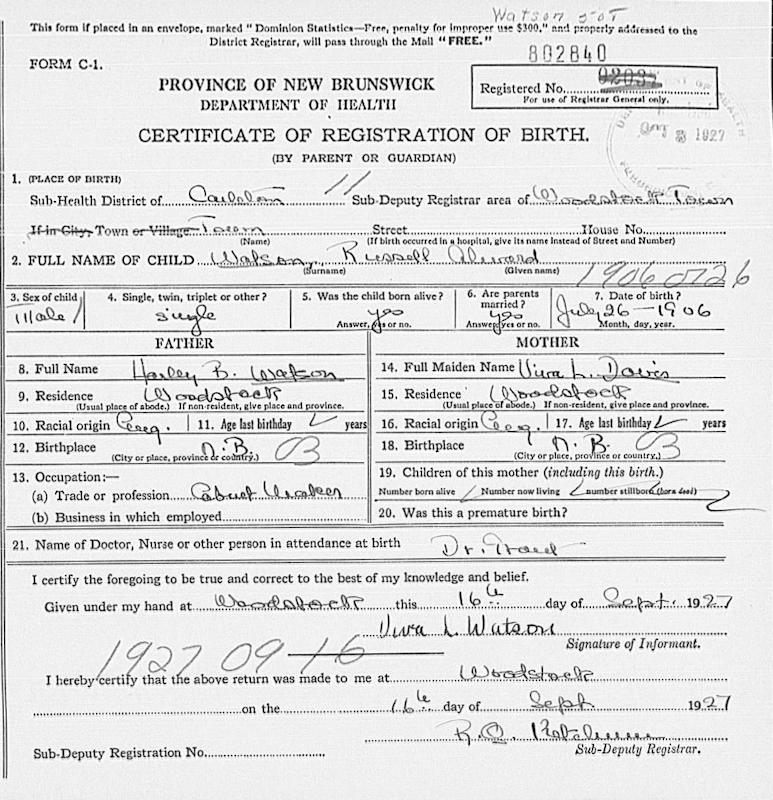 Watson
This form if placed in an envelope, marked "Dominion Statistics—Free, penalty for improper use $300," and properly addressed to the
District Registrar, will pass through the Mail "FREE."
FORM C-1.
802840
PROVINCE OF NEW BRUNSWICK
DEPARTMENT OF HEALTH
Registered No.
For use of Registrar General only.
CERTIFICATE OF REGISTRATION OF BIRTH.
1927
(BY PARENT OR GUARDIAN)
1. (PLACE OF BIRTH)
11
Sub-Health District of Carleton Sub-Deputy Registrar area of Woodstock Town
If in City, Town or Village Town Street House No.
(Name) (If birth occurred in a hospital, give its name instead of Street and Number)
2. FULL NAME OF CHILD Watson, Russell Alward
(Surname) (Given name)
19060726
3. Sex of child 4. Single, twin, triplet or other? 5. Was the child born alive? 6. Are parents married? 7. Date of birth?
Male single yes yes July 26—1906
Answer, yes or no. Answer, yes or no. Month, day, year.
FATHER MOTHER
8. Full Name Harley B. Watson 14. Full Maiden Name Viva L. Davis
9. Residence Woodstock 15. Residence Woodstock
(Usual place of abode.) If non-resident, give place and province. (Usual place of abode.) If non-resident, give place and province.
10. Racial origin Eng. 11. Age last birthday years 16. Racial origin Eng. 17. Age last birthday years
12. Birthplace N.B. 03 18. Birthplace N.B. 03
(City or place, province or country.) (City or place, province or country.)
13. Occupation:— 19. Children of this mother (including this birth.)
(a) Trade or profession Cabinet Maker Number born alive Number now living number stillborn (born dead)
(b) Business in which employed 20. Was this a premature birth?
21. Name of Doctor, Nurse or other person in attendance at birth Dr.
I certify the foregoing to be true and correct to the best of my knowledge and belief.
Given under my hand at Woodstock this 16th day of Sept. 1927
Viva L. Watson
Signature of Informant.
1927 09 16
I hereby certify that the above return was made to me at Woodstock
on the 16th day of Sept 1927
R. Q. Ketchum
Sub-Deputy Registration No. Sub-Deputy Registrar.